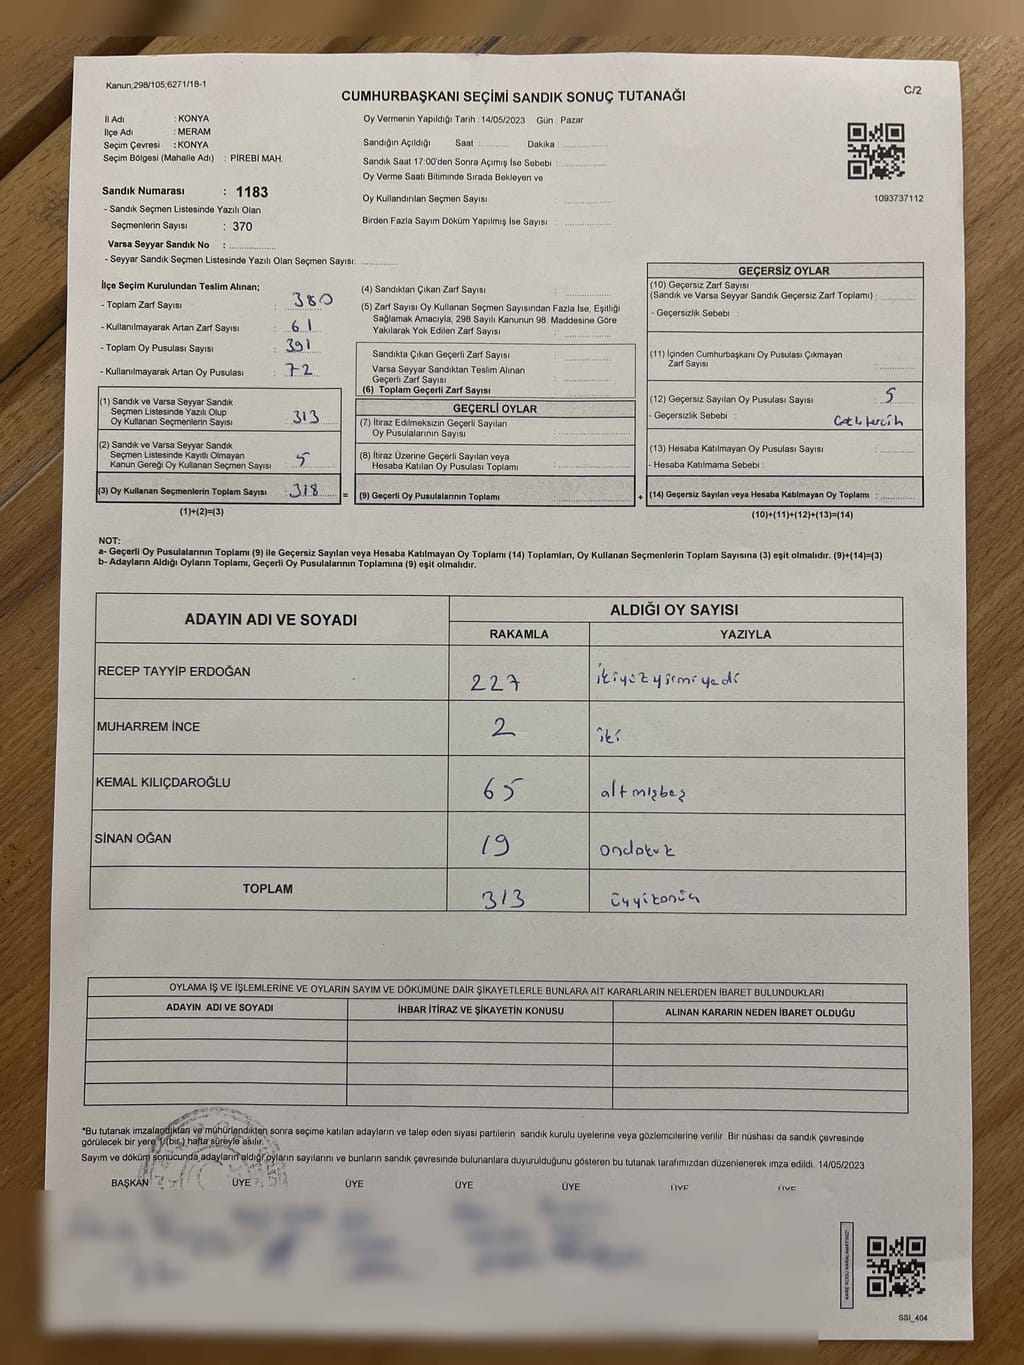 Kanun;298/105;6271/18-1
C/2
CUMHURBAŞKANI SEÇİMİ SANDIK SONUÇ TUTANAĞI
İl Adı : KONYA
İlçe Adı : MERAM
Seçim Çevresi : KONYA
Seçim Bölgesi (Mahalle Adı) : PİREBİ MAH.
Sandık Numarası : 1183
- Sandık Seçmen Listesinde Yazılı Olan
Seçmenlerin Sayısı : 370
Varsa Seyyar Sandık No : ..............
- Seyyar Sandık Seçmen Listesinde Yazılı Olan Seçmen Sayısı: ............
Oy Vermenin Yapıldığı Tarih : 14/05/2023 Gün : Pazar
Sandığın Açıldığı Saat :.......... Dakika :..............
Sandık Saat 17:00'den Sonra Açımış İse Sebebi : ..............
Oy Verme Saati Bitiminde Sırada Bekleyen ve
Oy Kullandırılan Seçmen Sayısı : ..............
Birden Fazla Sayım Döküm Yapılmış İse Sayısı : ..............
1093737112
İlçe Seçim Kurulundan Teslim Alınan;
- Toplam Zarf Sayısı : 380
- Kullanılmayarak Artan Zarf Sayısı : 61
- Toplam Oy Pusulası Sayısı : 391
- Kullanılmayarak Artan Oy Pusulası : 72
(1) Sandık ve Varsa Seyyar Sandık
Seçmen Listesinde Yazılı Olup
Oy Kullanan Seçmenlerin Sayısı : 313
(2) Sandık ve Varsa Seyyar Sandık
Seçmen Listesinde Kayıtlı Olmayan
Kanun Gereği Oy Kullanan Seçmen Sayısı : 5
(3) Oy Kullanan Seçmenlerin Toplam Sayısı : 318
(1)+(2)=(3)
(4) Sandıktan Çıkan Zarf Sayısı : ..............
(5) Zarf Sayısı Oy Kullanan Seçmen Sayısından Fazla İse, Eşitliği
Sağlamak Amacıyla; 298 Sayılı Kanunun 98. Maddesine Göre
Yakılarak Yok Edilen Zarf Sayısı : ..............
Sandıkta Çıkan Geçerli Zarf Sayısı : ..............
Varsa Seyyar Sandıktan Teslim Alınan
Geçerli Zarf Sayısı : ..............
(6) Toplam Geçerli Zarf Sayısı
GEÇERLİ OYLAR
(7) İtiraz Edilmeksizin Geçerli Sayılan
Oy Pusulalarının Sayısı : ..............
(8) İtiraz Üzerine Geçerli Sayılan veya
Hesaba Katılan Oy Pusulası Toplamı : ..............
= (9) Geçerli Oy Pusulalarının Toplamı : ..............
GEÇERSİZ OYLAR
(10) Geçersiz Zarf Sayısı
(Sandık ve Varsa Seyyar Sandık Geçersiz Zarf Toplamı) : ..........
- Geçersizlik Sebebi :
(11) İçinden Cumhurbaşkanı Oy Pusulası Çıkmayan
Zarf Sayısı : ..........
(12) Geçersiz Sayılan Oy Pusulası Sayısı : 5
- Geçersizlik Sebebi :
(13) Hesaba Katılmayan Oy Pusulası Sayısı : ..........
- Hesaba Katılmama Sebebi :
+ (14) Geçersiz Sayılan veya Hesaba Katılmayan Oy Toplamı : ..........
(10)+(11)+(12)+(13)=(14)
NOT:
a- Geçerli Oy Pusulalarının Toplamı (9) ile Geçersiz Sayılan veya Hesaba Katılmayan Oy Toplamı (14) Toplamları, Oy Kullanan Seçmenlerin Toplam Sayısına (3) eşit olmalıdır. (9)+(14)=(3)
b- Adayların Aldığı Oyların Toplamı, Geçerli Oy Pusulalarının Toplamına (9) eşit olmalıdır.
ADAYIN ADI VE SOYADI
ALDIĞI OY SAYISI
RAKAMLA YAZIYLA
RECEP TAYYİP ERDOĞAN 227 ikiyüzyirmiyedi
MUHARREM İNCE 2 iki
KEMAL KILIÇDAROĞLU 65 altmışbeş
SİNAN OĞAN 19 ondokuz
TOPLAM 313
OYLAMA İŞ VE İŞLEMLERİNE VE OYLARIN SAYIM VE DÖKÜMÜNE DAİR ŞİKAYETLERLE BUNLARA AİT KARARLARIN NELERDEN İBARET BULUNDUKLARI
ADAYIN ADI VE SOYADI İHBAR İTİRAZ VE ŞİKAYETİN KONUSU ALINAN KARARIN NEDEN İBARET OLDUĞU
*Bu tutanak imzalandıktan ve mühürlendikten sonra seçime katılan adayların ve talep eden siyasi partilerin sandık kurulu üyelerine veya gözlemcilerine verilir. Bir nüshası da sandık çevresinde
görülecek bir yere 1 (bir ) hafta süreyle asılır.
Sayım ve döküm sonucunda adayların aldığı oyların sayılarını ve bunların sandık çevresinde bulunanlara duyurulduğunu gösteren bu tutanak tarafımızdan düzenlenerek imza edildi. 14/05/2023
BAŞKAN ÜYE ÜYE ÜYE ÜYE ÜYE ÜYE
SSI_404